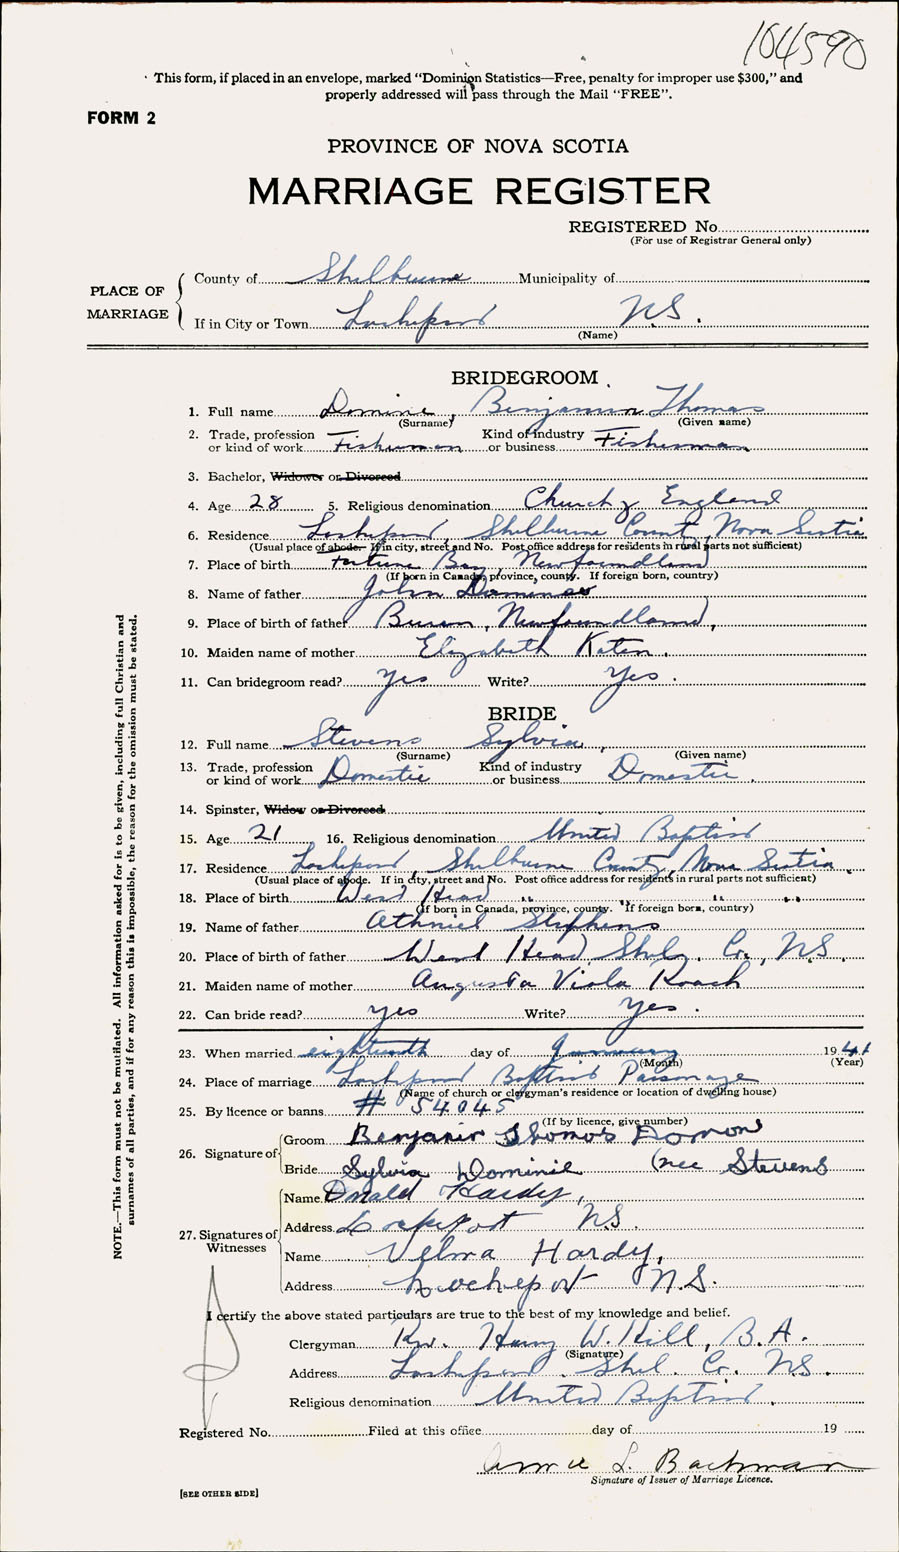 104590
This form, if placed in an envelope, marked "Dominion Statistics—Free, penalty for improper use $300," and
properly addressed will pass through the Mail "FREE".
FORM 2
PROVINCE OF NOVA SCOTIA
MARRIAGE REGISTER
REGISTERED No
(For use of Registrar General only)
PLACE OF MARRIAGE
County of Shelburne Municipality of
If in City or Town Lockeport N.S.
(Name)
BRIDEGROOM
1. Full name Domine, Benjamin Thomas
(Surname) (Given name)
2. Trade, profession or kind of work Fisherman Kind of industry or business Fisherman
3. Bachelor, Widower or Divorced
4. Age 28 5. Religious denomination Church of England
6. Residence Lockeport, Shelburne County, Nova Scotia
(Usual place of abode. If in city, street and No. Post office address for residents in rural parts not sufficient)
7. Place of birth Fortune Bay, Newfoundland
(If born in Canada, province, county. If foreign born, country)
8. Name of father John
9. Place of birth of father Burin, Newfoundland,
10. Maiden name of mother Elizabeth Katen.
11. Can bridegroom read? Yes Write? Yes.
BRIDE
12. Full name Stevens Sylvia,
(Surname) (Given name)
13. Trade, profession or kind of work Domestic Kind of industry or business Domestic.
14. Spinster, Widow or Divorced
15. Age 21 16. Religious denomination United Baptist
17. Residence Lockeport, Shelburne County, Nova Scotia.
(Usual place of abode. If in city, street and No. Post office address for residents in rural parts not sufficient)
18. Place of birth West Head " " "
(If born in Canada, province, county. If foreign born, country)
19. Name of father Athniel Stephens
20. Place of birth of father West Head, Shelb. Co., N.S.
21. Maiden name of mother Augusta Viola Roach
22. Can bride read? Yes Write? Yes.
23. When married eighteenth day of January 1941
(Month) (Year)
24. Place of marriage Lockeport Baptist Parsonage
(Name of church or clergyman's residence or location of dwelling house)
25. By licence or banns # 54045
(If by licence, give number)
26. Signature of
Groom Benjamin Thomas
Bride Sylvia Dominie (nee Stevens
27. Signatures of Witnesses
Name Donald Hardy,
Address Lockeport N.S.
Name Velma Hardy,
Address Lockeport N.S.
I certify the above stated particulars are true to the best of my knowledge and belief.
Clergyman Rev. Harry W. Hill, B.A.
(Signature)
Address Lockeport, Shel. Co. N.S.
Religious denomination United Baptist.
Registered No. Filed at this office day of 19
Annie L. Bachman
Signature of Issuer of Marriage Licence.
[SEE OTHER SIDE]
NOTE.—This form must not be mutilated. All information asked for is to be given, including full Christian and
surnames of all parties, and if for any reason this is impossible, the reason for the omission must be stated.